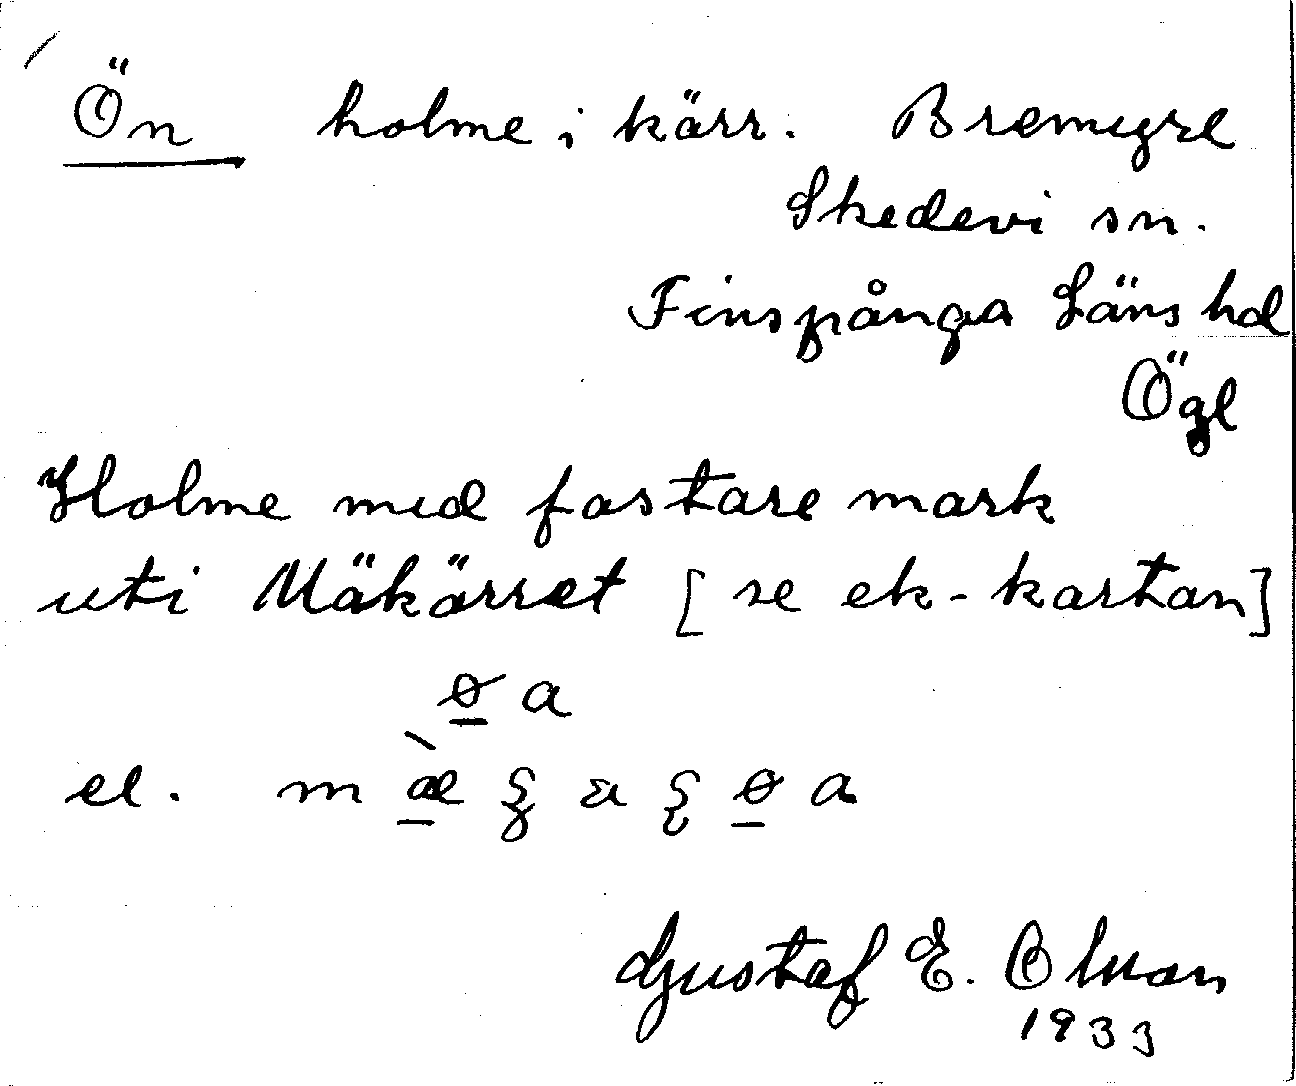 Ön holme i kärr. Bremyre
Skedevi sn.
Finspånga Läns hd
Ögl
Holme med fastare mark
uti Mäkärret [se ek-kartan]
ø̲ a
el.
Gustaf E. Olsson
1933